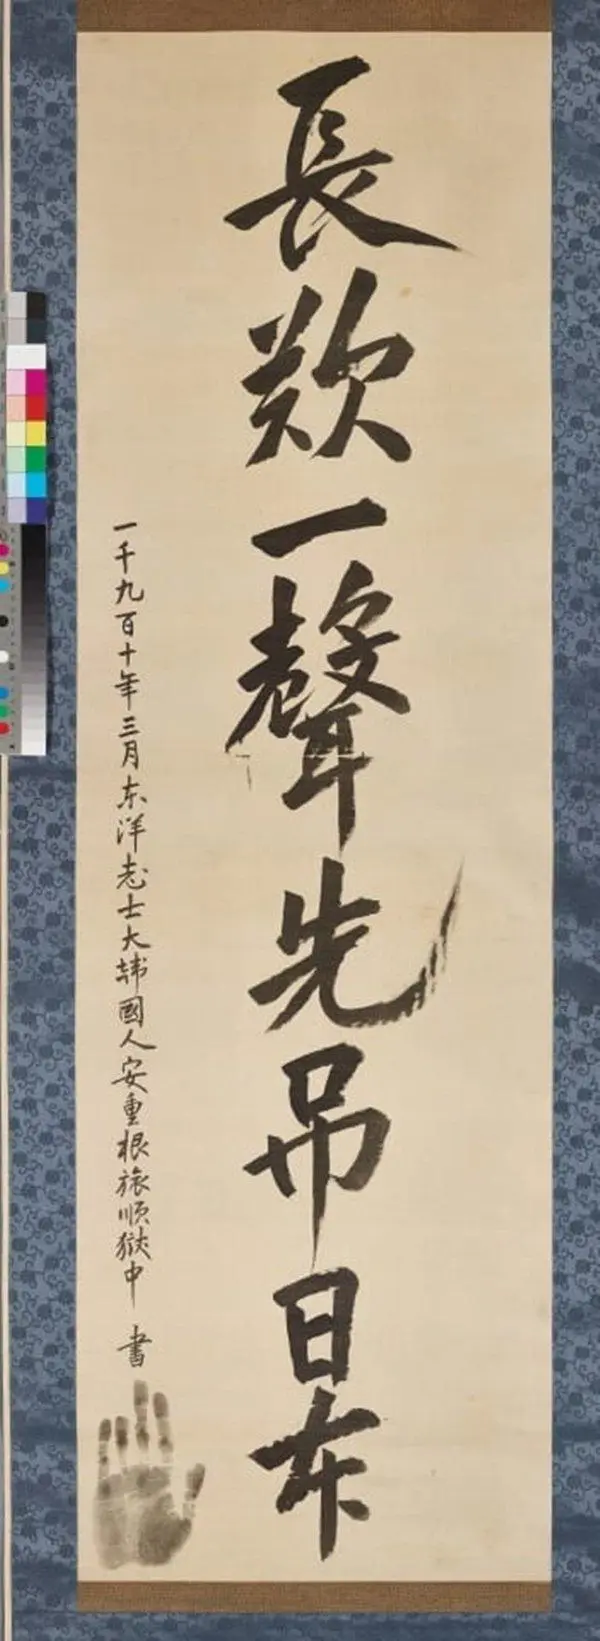 長歎一聲先吊日本
一千九百十年三月东洋志士大韩國人安重根旅順獄中 書